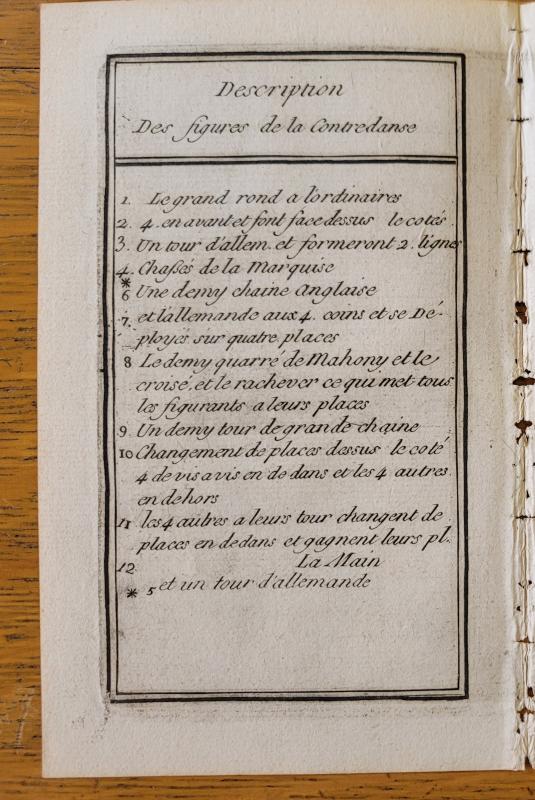 Description
Des figures de la Contredanse
1. Le grand rond a l'ordinaires
2. 4. en avant et font face dessus le cotés
3. Un tour d'allem. et formeront 2. lignes
4. Chaßés de la Marquise
*
6 Une demy chaine Anglaise
7 et l'allemande aux 4. coins et se Dé-
ployés sur quatre places
8 Le demy quarré de Mahony et le
croisé, et le rachever ce qui met tous
les figurants a leurs places
9. Un demy tour de grande chaine
10 Changement de places dessus le coté
4 de vis a vis en de dans et les 4 autres
en dehors
11 les 4 autres a leurs tour changent de
places en dedans et gagnent leurs pl.
12. La Main
* 5 et un tour d'allemande